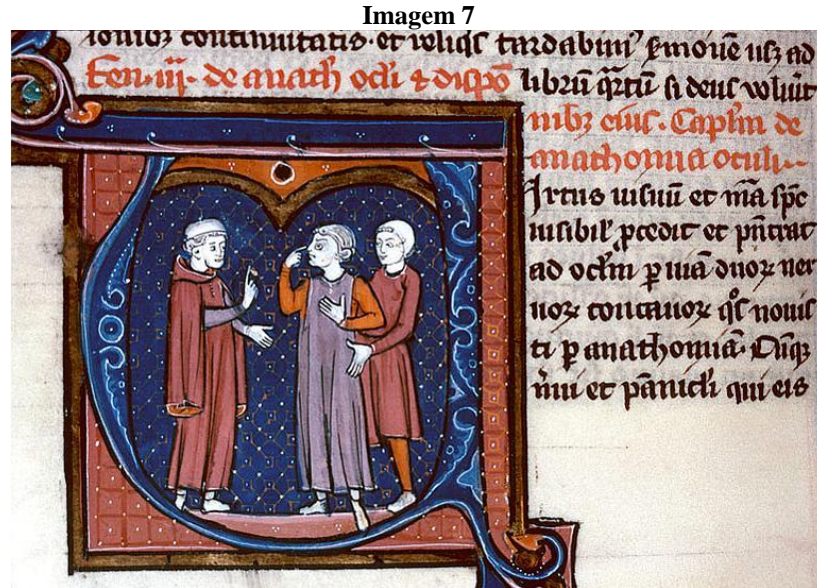 Imagem 7
ionibꝫ continuitatis · et reliq̄s tardabim᾽ ẜmonē usꝫ ad
Fen · iij · de anath̄ ocl̄i ⁊ dispō librū q̄rtū si deus voluīt
nibꝫ eius · Capl̄m de
anathomia oculi
Irtus uisiuū et mā spē
uisibil᾽ ꝓcedit et pn̄trat
ad ocl̄m ꝑ uiā duoꝝ ner
uoꝝ concauoꝝ qͦs nouis
ti ꝑ anathomiā · Cūqꝫ
n̄ui et pānicl̄i qui eis